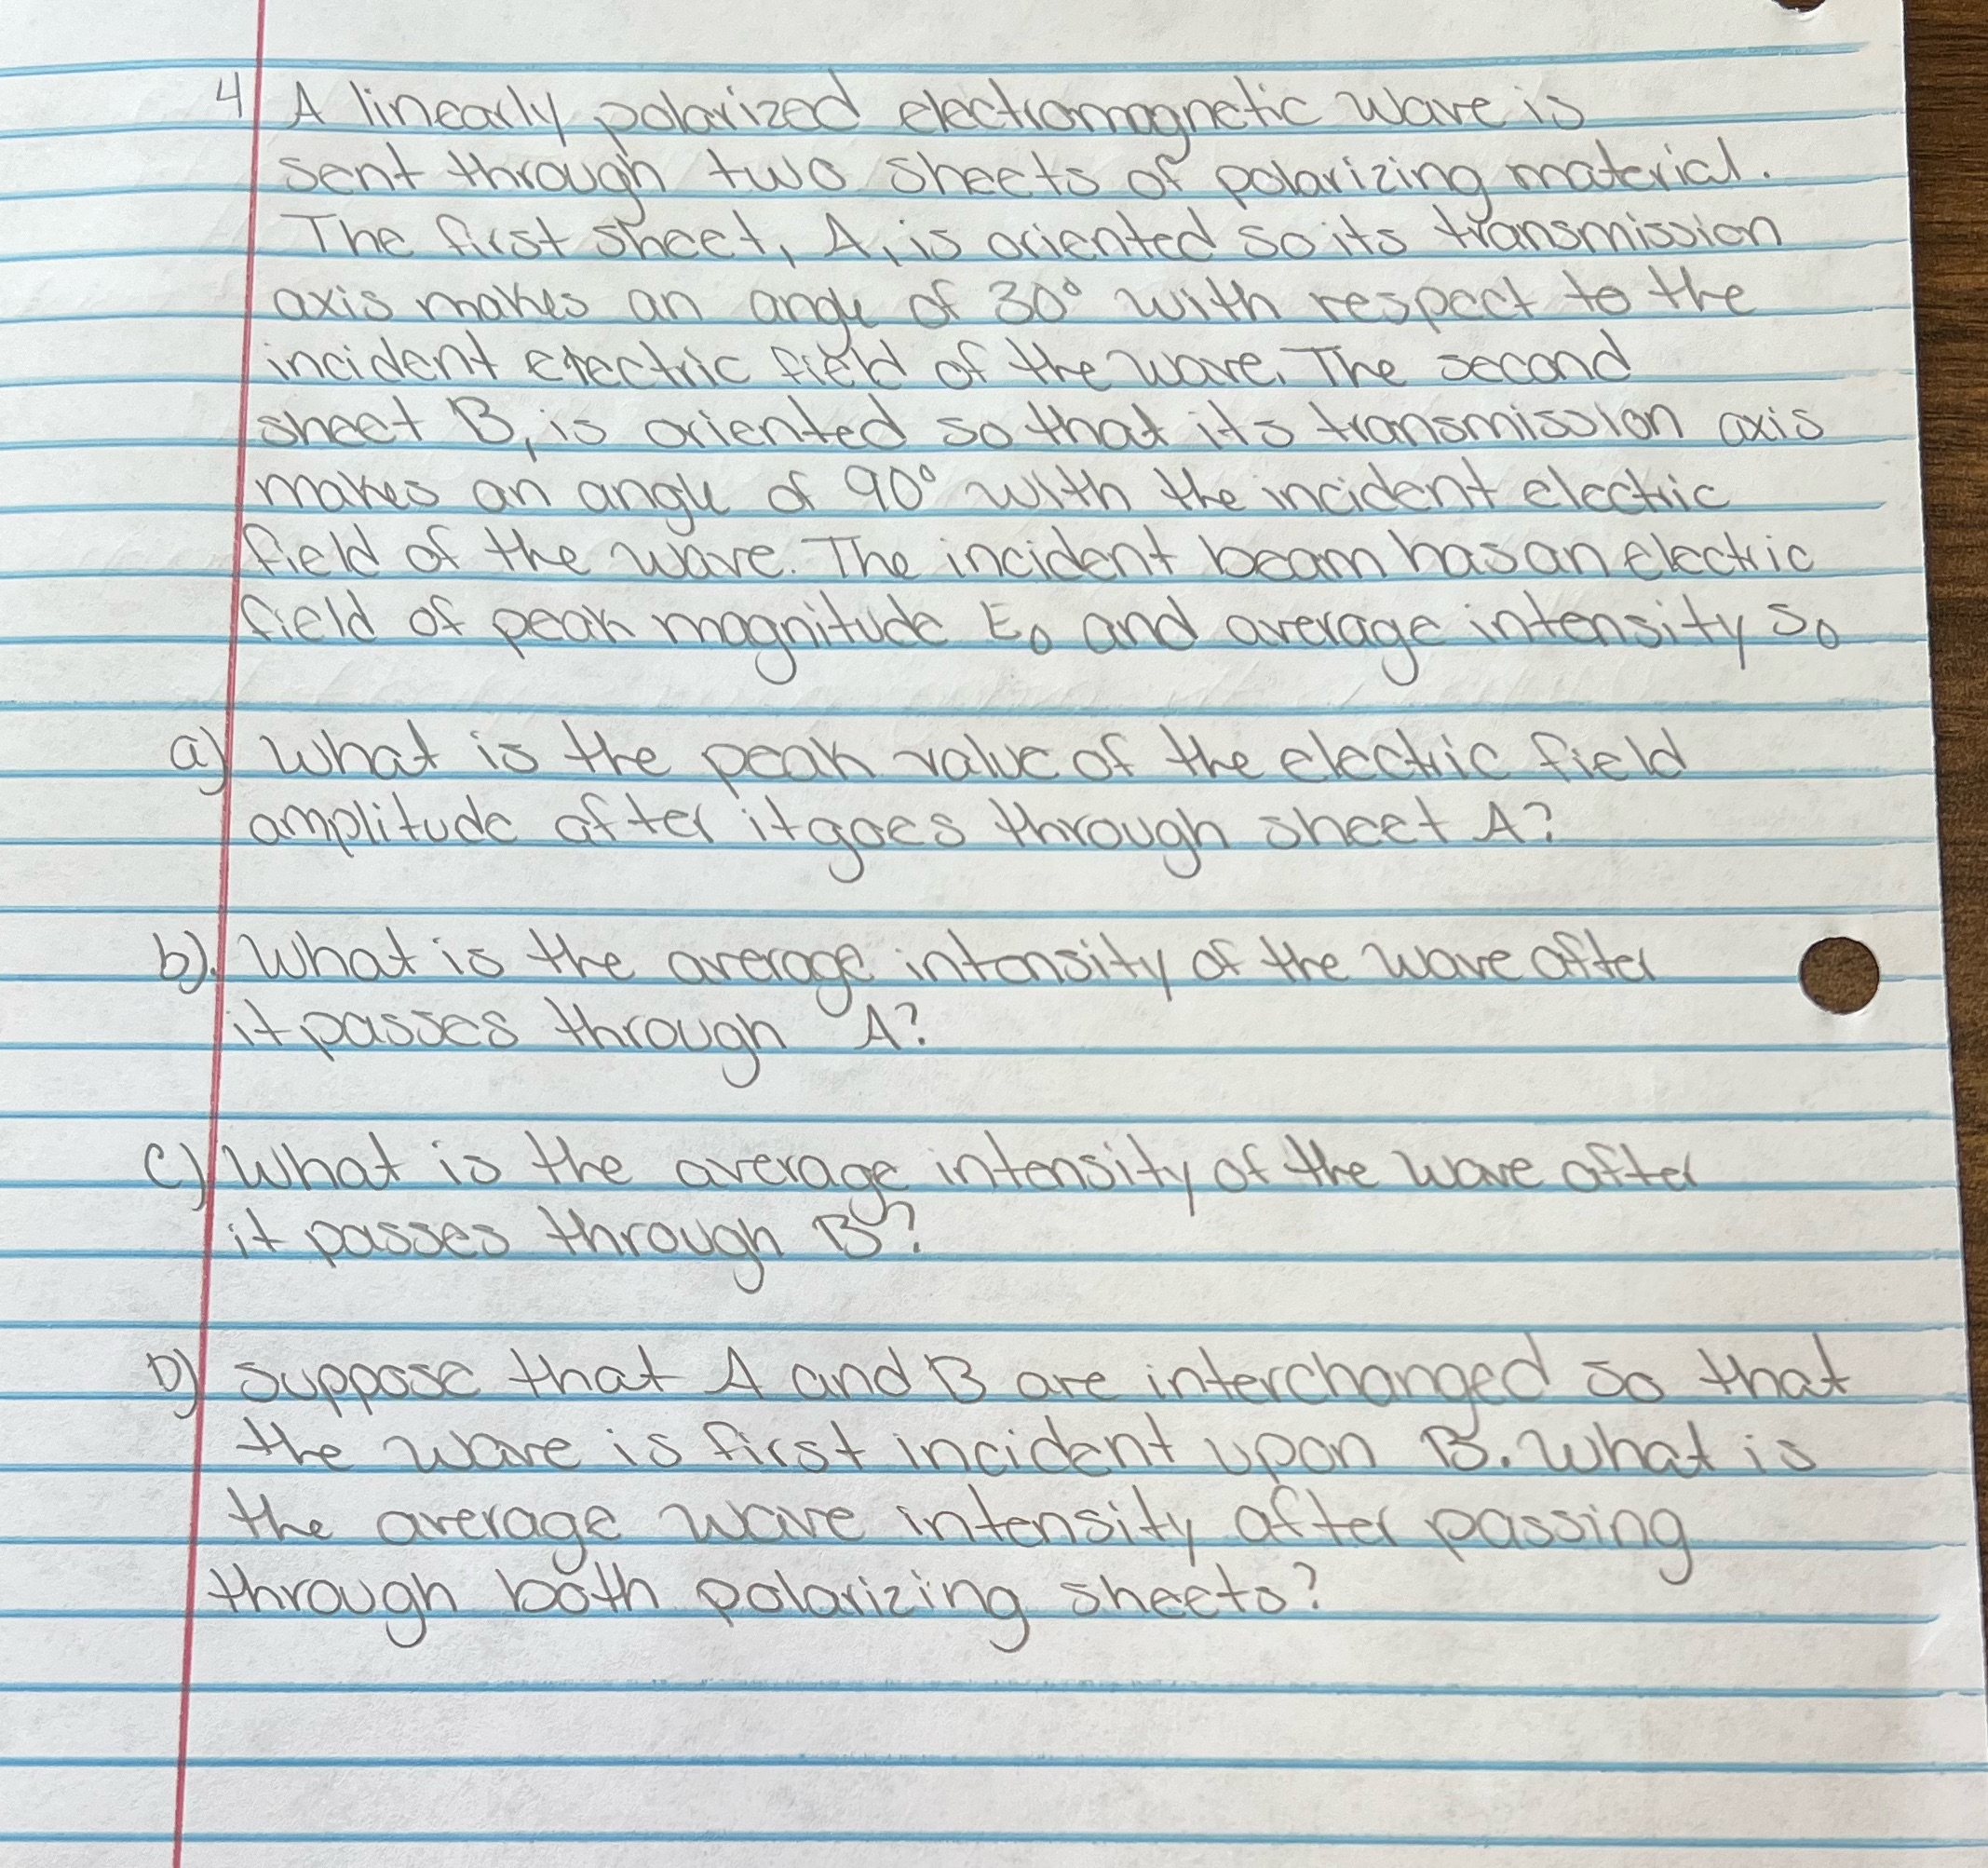 4 A linearly polarized electromagnetic wave is
sent through two sheets of polarizing material.
The first sheet, A, is oriented so its transmission
axis makes an angle of 30° with respect to the
incident electric field of the wave. The second
sheet B, is oriented so that its transmission axis
makes an angle of 90° with the incident electric
field of the wave. The incident beam has an electric
field of peak magnitude E₀ and average intensity S₀
a) What is the peak value of the electric field
amplitude after it goes through sheet A?
b). What is the average intensity of the wave after
it passes through A?
c) What is the average intensity of the wave after
it passes through B?
D) Suppose that A and B are interchanged so that
the wave is first incident upon B. What is
the average wave intensity after passing
through both polarizing sheets?